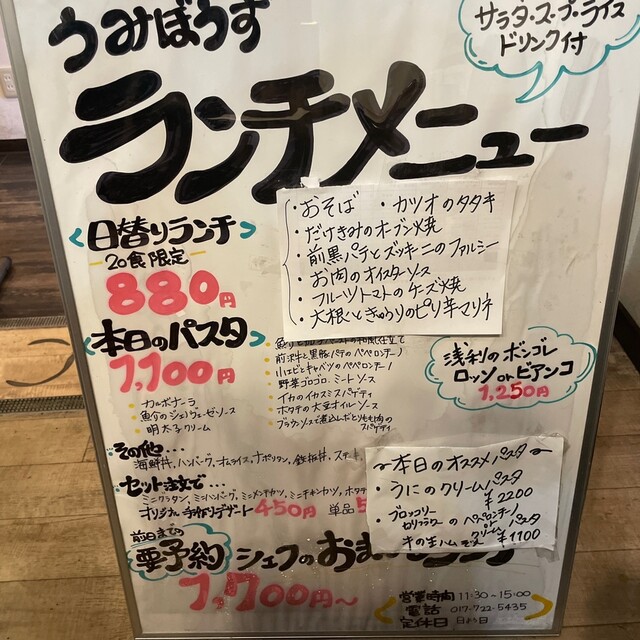 うみぼうず
サラダ・スープ・ライス
ドリンク付
ランチメニュー
日替りランチ
20食限定
880円
・おそば ・カツオのタタキ
・だけきみのオーブン焼
・前黒パテとズッキーニのファルシー
・お肉のオイスターソース
・フルーツトマトのチーズ焼
・大根ときゅうりのピリ辛マリネ
本日のパスタ
1,100円
・カルボナーラ
・魚介のジェノヴェーゼソース
・明太子クリーム
・前沢牛と黒豚パテのペペロンチーノ
・小エビとキャベツのペペロンチーノ
・野菜ゴロゴロミートソース
・イカのイカスミスパゲティ
・ホタテの大葉オイルソース
・ブラウンソースで煮込んだとりもも肉の
スパゲティ
浅利のボンゴレ
ロッソorビアンコ
1,250円
その他…
海鮮丼,ハンバーグ,オムライス,ナポリタン,鉄板丼,ステーキ
セット注文で…
ミニグラタン,ミニハンバーグ,ミニメンチカツ,ミニチキンカツ,ホタテ
オリジナル手作りデザート 450円 単品
〜本日のオススメパスタ〜
・うにのクリームパスタ
¥2200
・ブロッコリー
カリフラワーのペペロンチーノ
or
クリームパスタ
¥1100
前日までの
要予約 シェフのおま
1,700円〜
営業時間 11:30-15:00
電話 017-722-5435
定休日 日よう